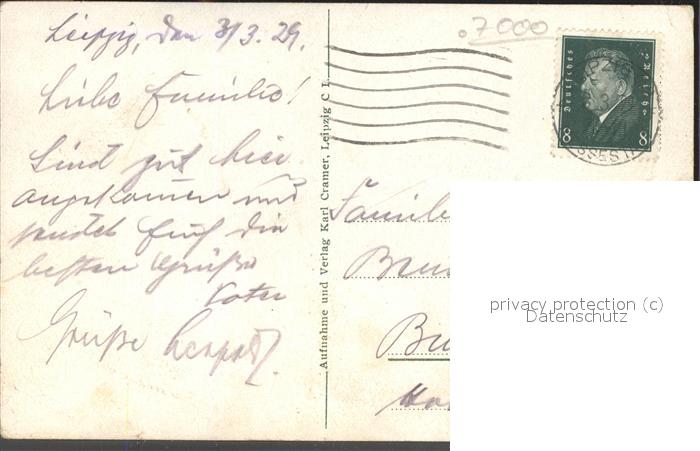 Leipzig, den 3/3. 29.
Liebe Familie!
Sind gut hier
angekommen und
sendet Euch die
besten Grüße
Vater
Grüße
Aufnahme und Verlag Karl Cramer, Leipzig C 1.
7000
Deutsches Reich
8 8
Familie
privacy protection (c)
Datenschutz